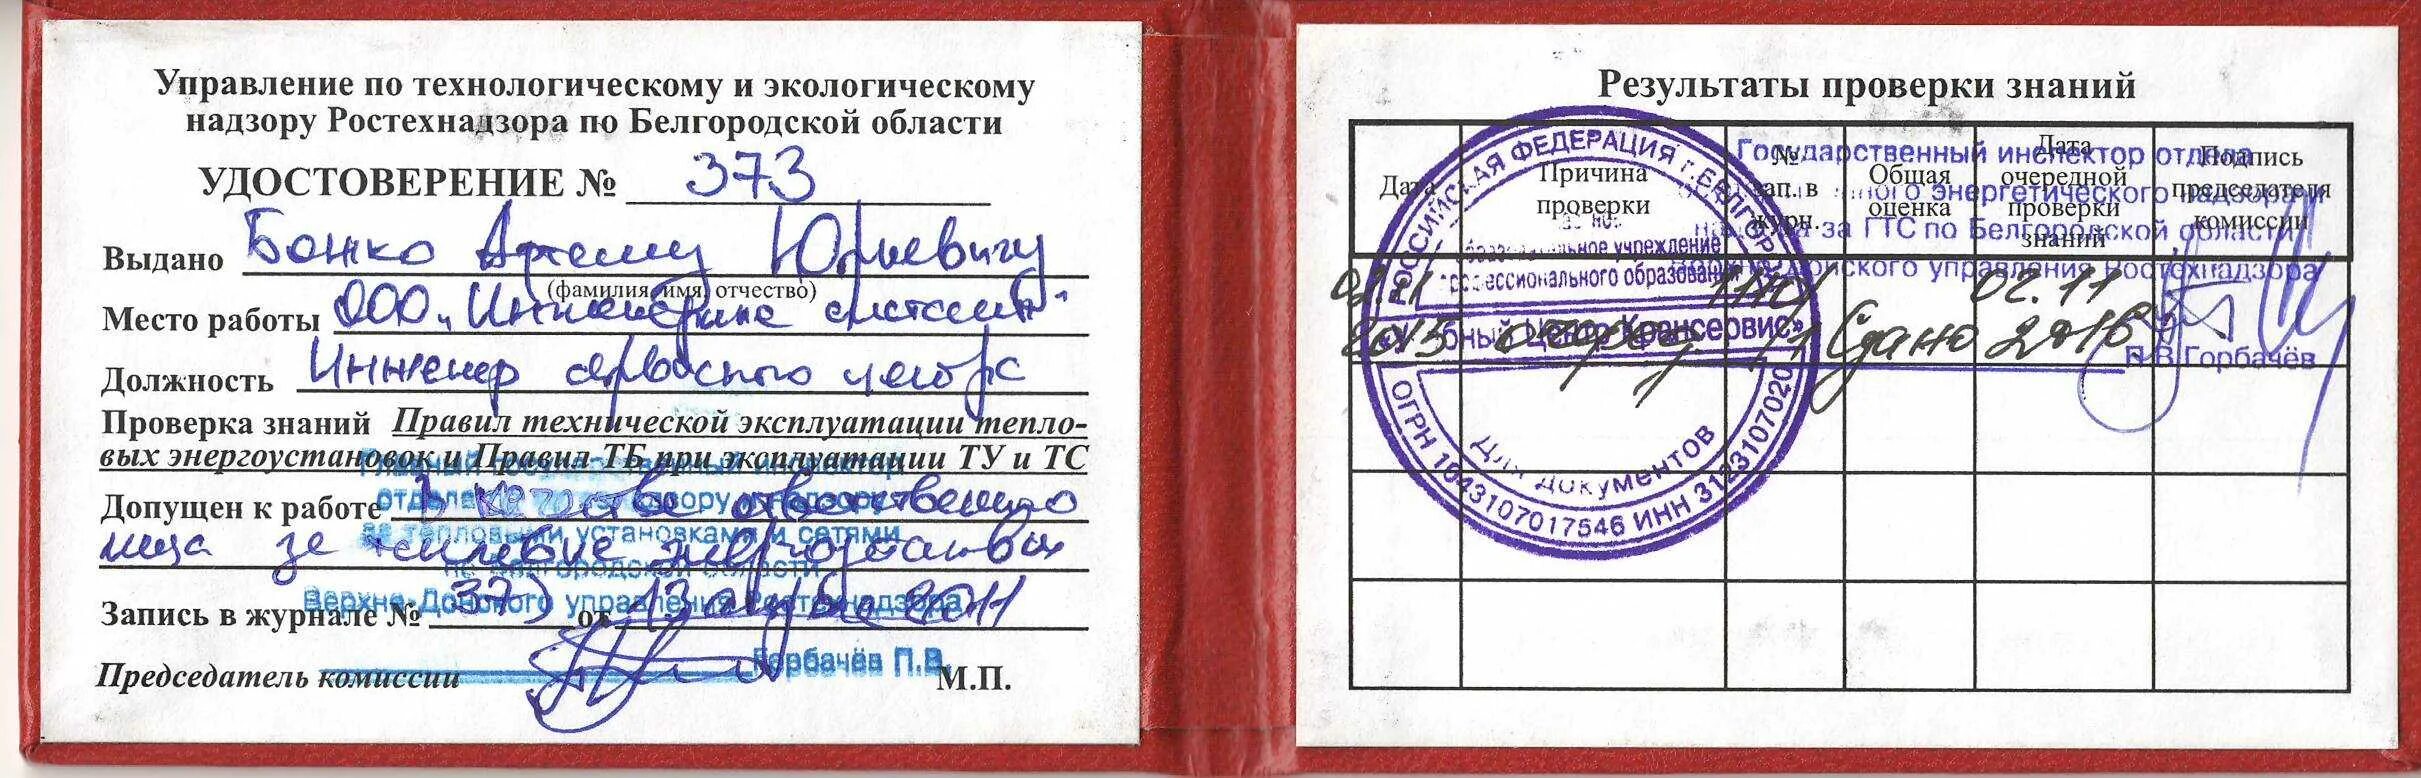 Управление по технологическому и экологическому
надзору Ростехнадзора по Белгородской области
УДОСТОВЕРЕНИЕ № 373
Выдано Божко Артему Юрьевичу
(фамилия, имя, отчество)
Место работы ООО „Инженерные системы"
Должность Инженер сервисного центра
Проверка знаний Правил технической эксплуатации тепло-
вых энергоустановок и Правил ТБ при эксплуатации ТУ и ТС
Допущен к работе в качестве ответственного
лица за тепловые энергоустановки
Запись в журнале № 373 от 13 октября 2011
Председатель комиссии М.П.
Главный государственный инспектор
отдела надзору и надзору
за тепловыми установками и сетями
по Белгородской области
Верхне-Донского управления Ростехнадзора
Горбачёв П.В.
Результаты проверки знаний
Дата
Причина проверки
№ зап. в журн.
Общая оценка
Дата очередной проверки знаний
Подпись председателя комиссии
02.11 2015 Сдано 02.11 2016
Государственный инспектор отдела
энергетического надзора и
надзора за ГТС по Белгородской области
Верхне-Донского управления Ростехнадзора
П.В.Горбачёв
РОССИЙСКАЯ ФЕДЕРАЦИЯ г.БЕЛГОРОД
образовательное учреждение
профессионального образования
«Учебный Центр Трансервис»
Для документов
ОГРН 1043107017546 ИНН 3123107020